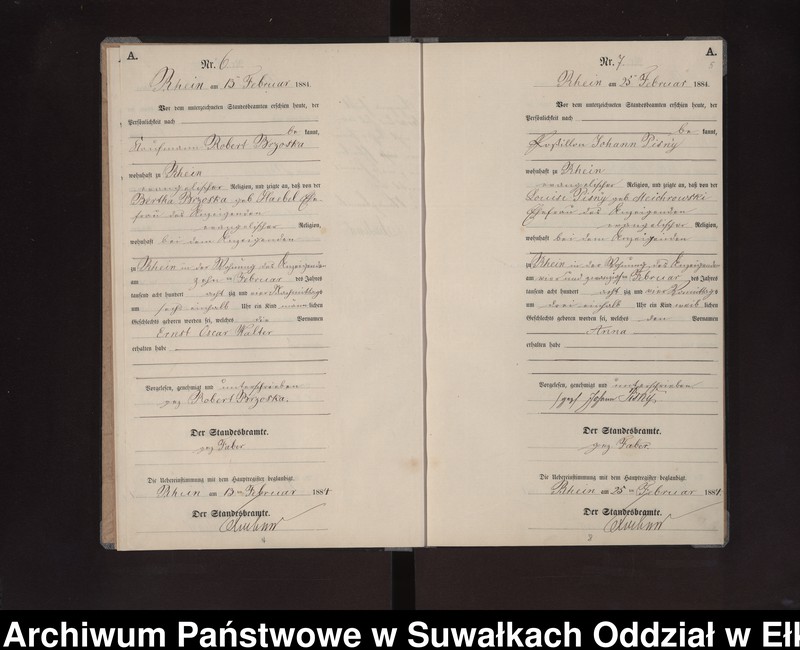 A.
Nr. 6
Rhein am 15 Februar 1884.
Vor dem unterzeichneten Standesbeamten erschien heute, der
Persönlichkeit nach
be kannt,
Kaufmann Robert Brzoska
wohnhaft zu Rhein
evangelischer Religion, und zeigte an, daß von der
Bertha Brzoska geb Haebel Ehe-
frau des Anzeigenden
evangelischer Religion,
wohnhaft bei dem Anzeigenden
zu Rhein in der Wohnung des Anzeigenden
am zehn ten Februar des Jahres
tausend acht hundert acht zig und vier Nachmittags
um sechs einhalb Uhr ein Kind männlichen
Geschlechts geboren worden sei, welches die Vornamen
Ernst Oscar Walter
erhalten habe
Vorgelesen, genehmigt und unterschrieben
gez Robert Brzoska.
Der Standesbeamte.
gez Faber
Die Uebereinstimmung mit dem Hauptregister beglaubigt.
Rhein am 15 ten Februar 1884
Der Standesbeamte.
4
A.
Nr. 7
Rhein am 25 Februar 1884.
Vor dem unterzeichneten Standesbeamten erschien heute, der
Persönlichkeit nach
be kannt,
Postillon Johann Pisny
wohnhaft zu Rhein
evangelischer Religion, und zeigte an, daß von der
Louise Pisny geb
Ehefrau des Anzeigenden
evangelischer Religion,
wohnhaft bei dem Anzeigenden
zu Rhein in der Wohnung des Anzeigenden
am vier und zwanzigsten Februar des Jahres
tausend acht hundert acht zig und vier Vormittags
um drei einhalb Uhr ein Kind weib lichen
Geschlechts geboren worden sei, welches den Vornamen
Anna
erhalten habe
Vorgelesen, genehmigt und unterschrieben
gez Johann Pisny.
Der Standesbeamte.
gez Faber
Die Uebereinstimmung mit dem Hauptregister beglaubigt.
Rhein am 25 ten Februar 1884
Der Standesbeamte.
Archiwum Państwowe w Suwałkach Oddział w Ełk